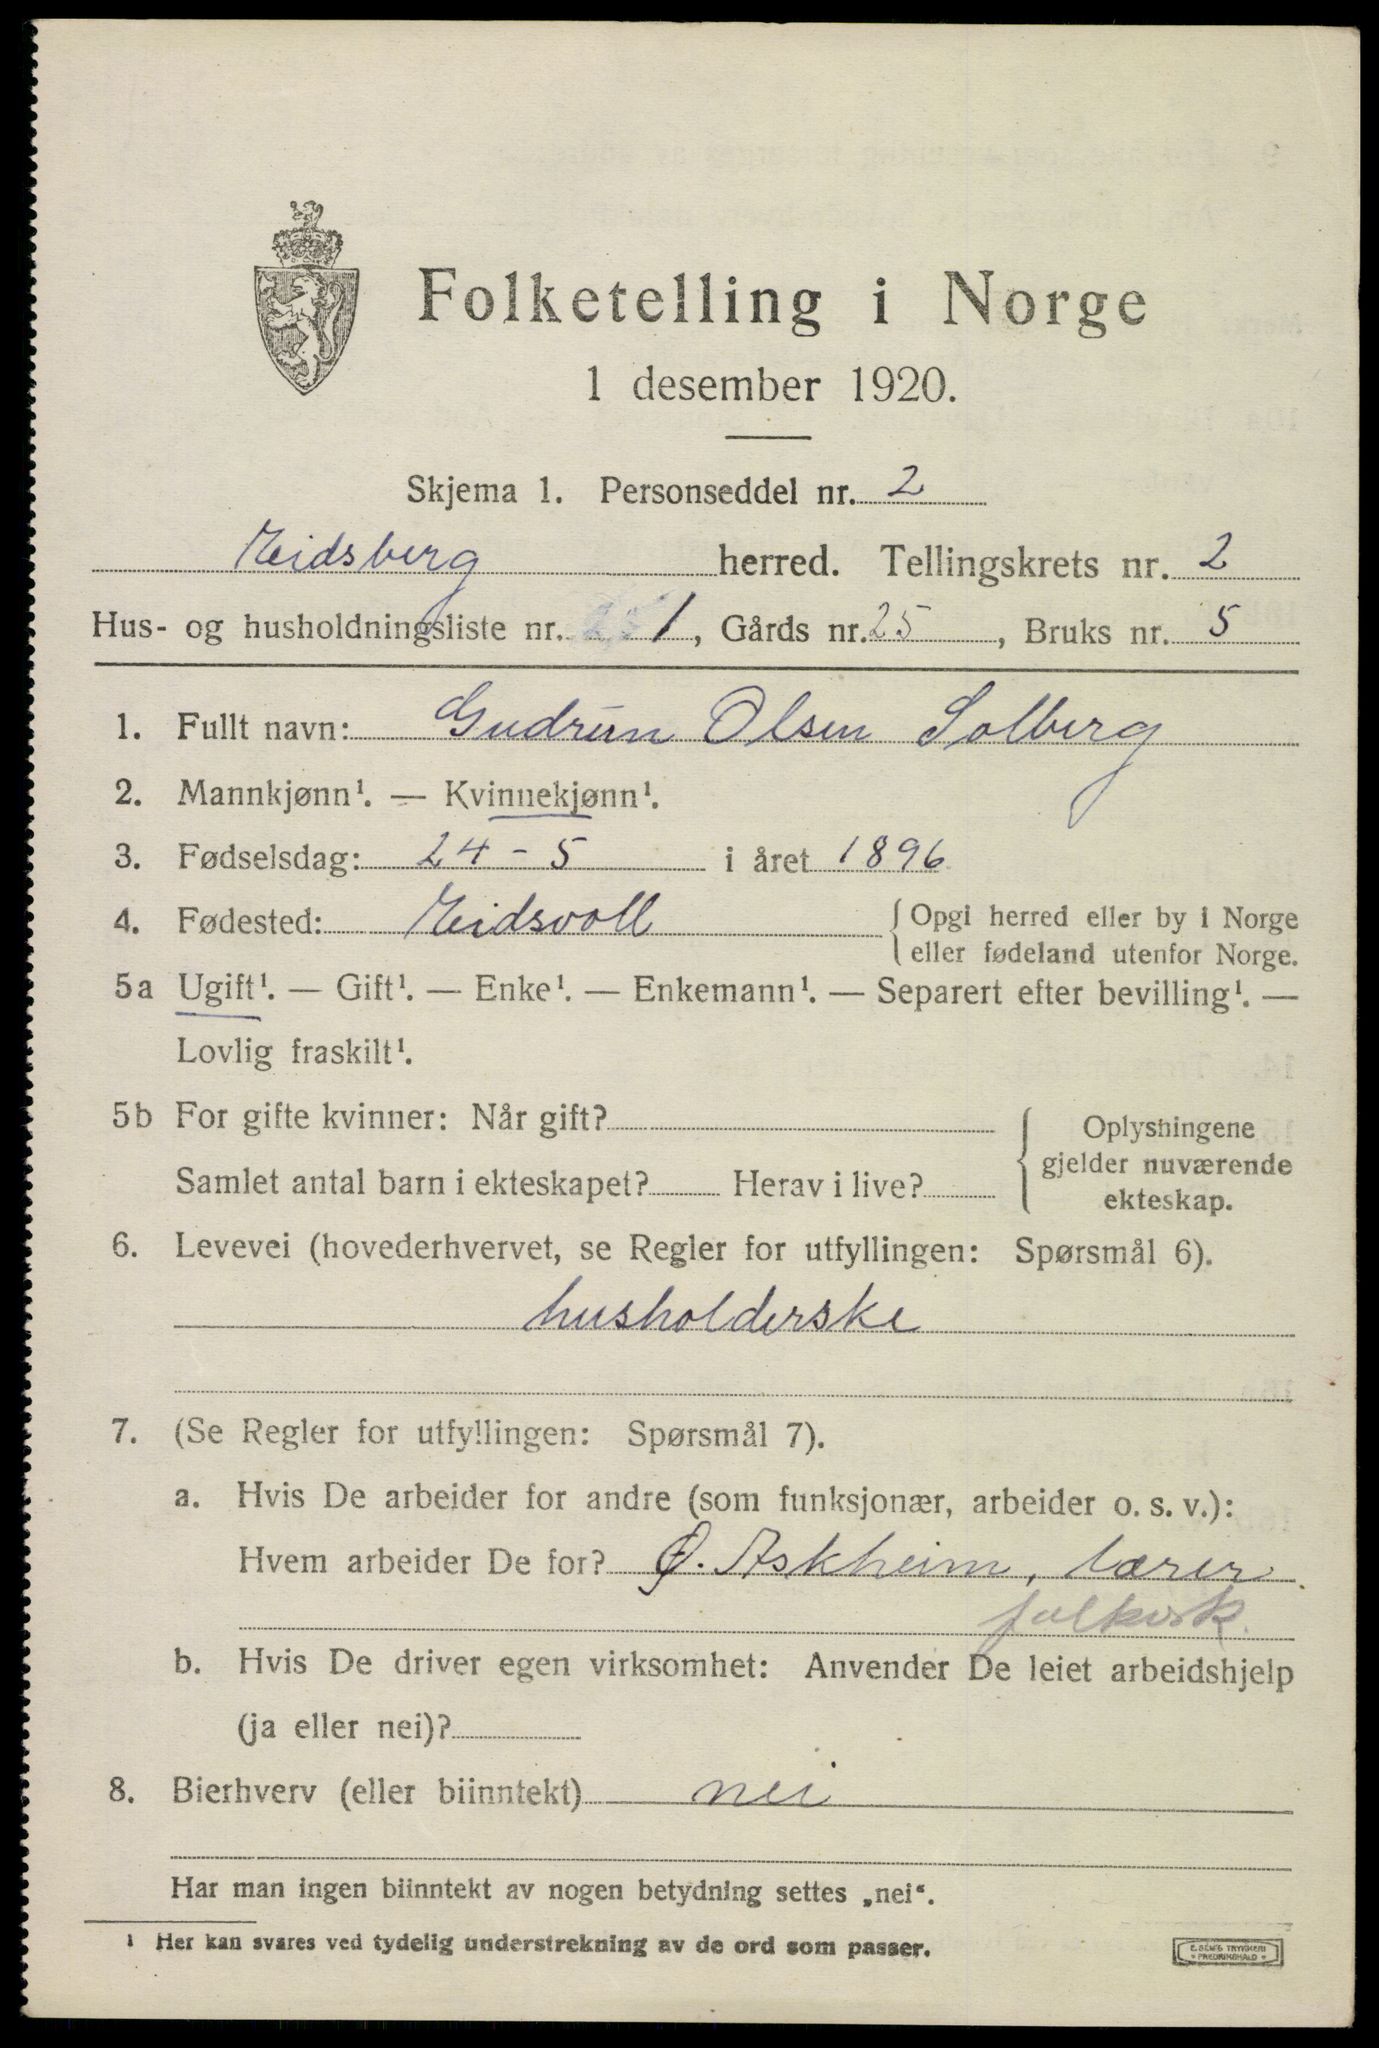 Folketelling i Norge
1 desember 1920.
Skjema 1. Personseddel nr. 2
Eidsberg herred. Tellingskrets nr. 2
Hus- og husholdningsliste nr. 1, Gårds nr. 25, Bruks nr. 5
1. Fullt navn: Gudrun Olsen Solberg
2. Mannkjønn¹. — Kvinnekjønn¹.
3. Fødselsdag: 24 - 5 i året 1896
4. Fødested: Eidsvoll { Opgi herred eller by i Norge
eller fødeland utenfor Norge.
5a Ugift¹. — Gift¹. — Enke¹. — Enkemann¹. — Separert efter bevilling¹. —
Lovlig fraskilt¹.
5b For gifte kvinner: Når gift? { Oplysningene
gjelder nuværende
Samlet antal barn i ekteskapet? Herav i live?
ekteskap.
6. Levevei (hovederhvervet, se Regler for utfyllingen: Spørsmål 6).
husholderske
7. (Se Regler for utfyllingen: Spørsmål 7).
a. Hvis De arbeider for andre (som funksjonær, arbeider o. s. v.):
Hvem arbeider De for? Ø. Askheim, lærer
folkesk.
b. Hvis De driver egen virksomhet: Anvender De leiet arbeidshjelp
(ja eller nei)?
8. Bierhverv (eller biinntekt) nei
Har man ingen biinntekt av nogen betydning settes „nei“.
¹ Her kan svares ved tydelig understrekning av de ord som passer.
E. SEMS TRYKKERI
• FREDRIKSHALD •